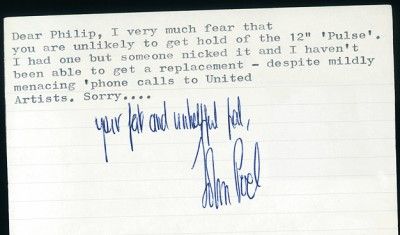 Dear Philip, I very much fear that
you are unlikely to get hold of the 12" 'Pulse'.
I had one but someone nicked it and I haven't
been able to get a replacement - despite mildly
menacing 'phone calls to United
Artists. Sorry....
your fat and unhelpful pal,
John Peel